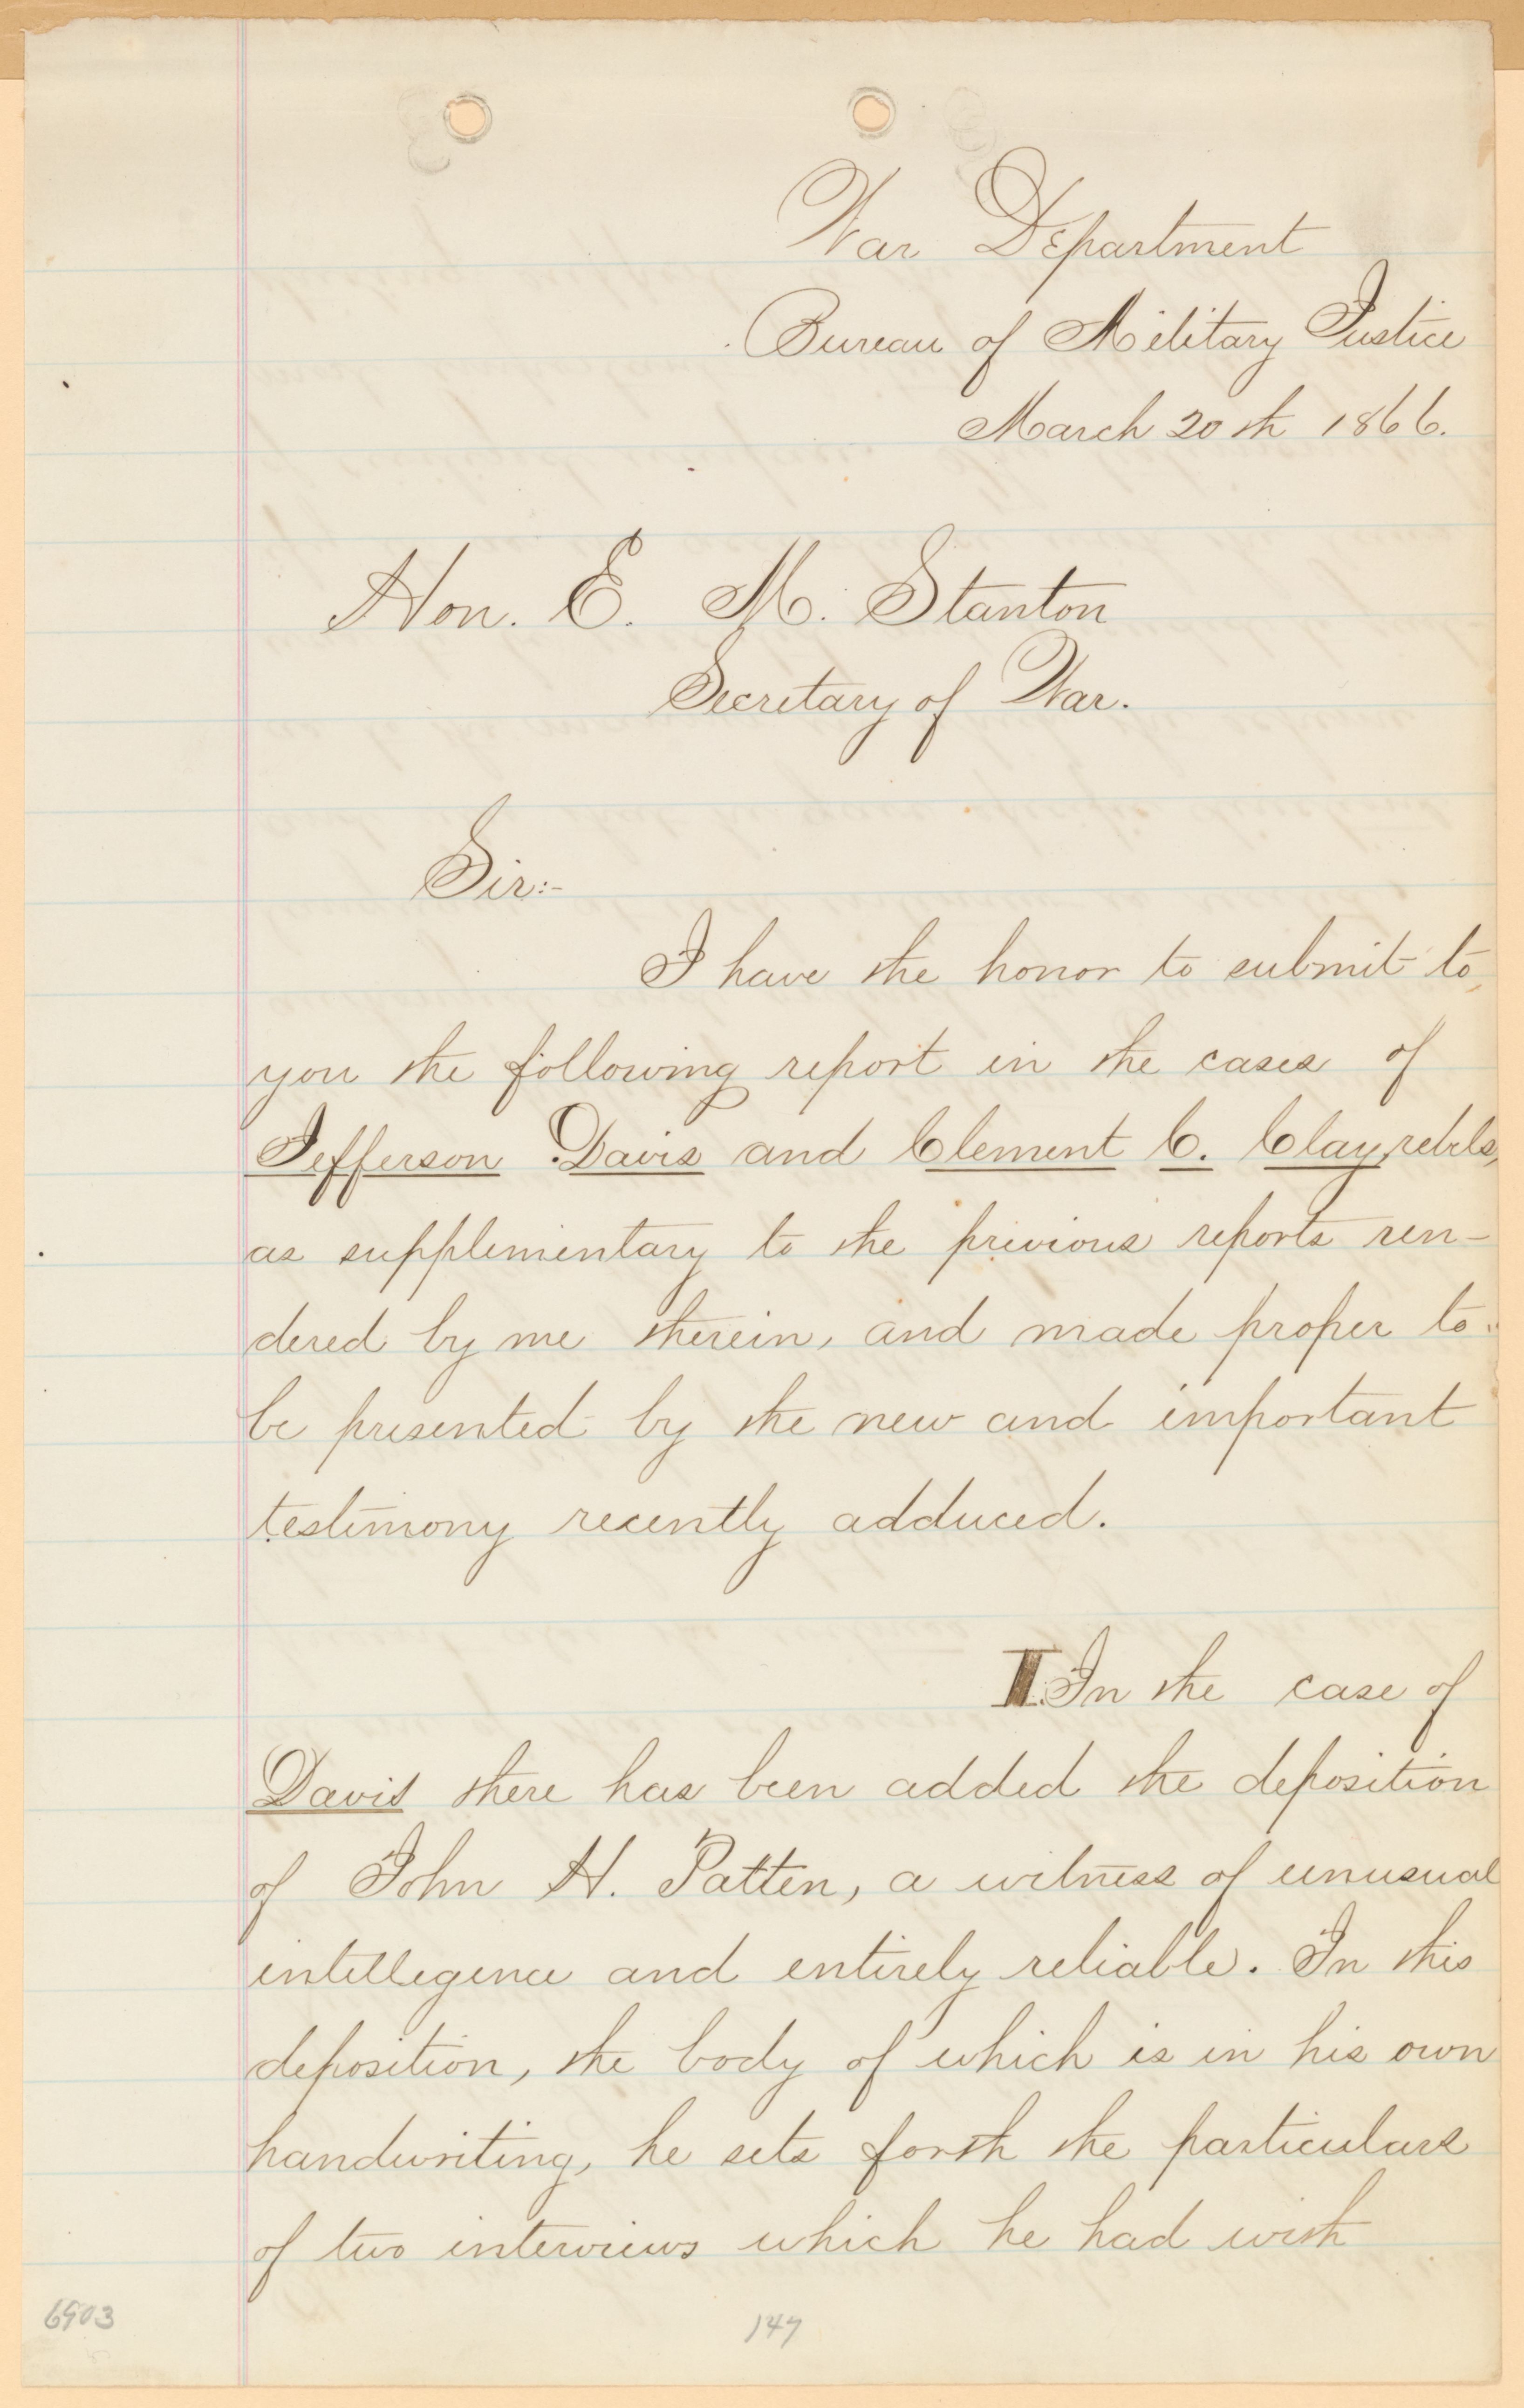 War Department
Bureau of Military Justice
March 20th 1866.
Hon. E. M. Stanton
Secretary of War.
Sir:-
I have the honor to submit to
you the following report in the cases of
Jefferson Davis and Clement C. Clay, rebels,
as supplimentary to the privious reports ren-
dered by me therein, and made proper to
be presented by the new and important
testimony recently adduced.
I. In the case of
Davis there has been added the deposition
of John H. Patten, a witness of unusual
intellegence and entirely reliable. In this
deposition, the body of which is in his own
handwriting, he sets forth the particulars
of two interviews which he had with
6903
147